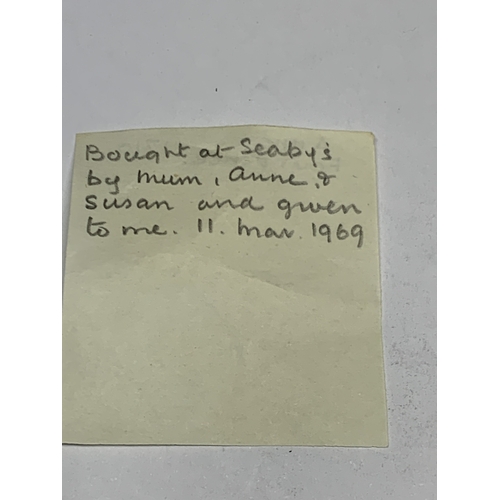 Bought at Seaby's
by Mum, Anne, &
Susan and given
to me. 11. Mar. 1969